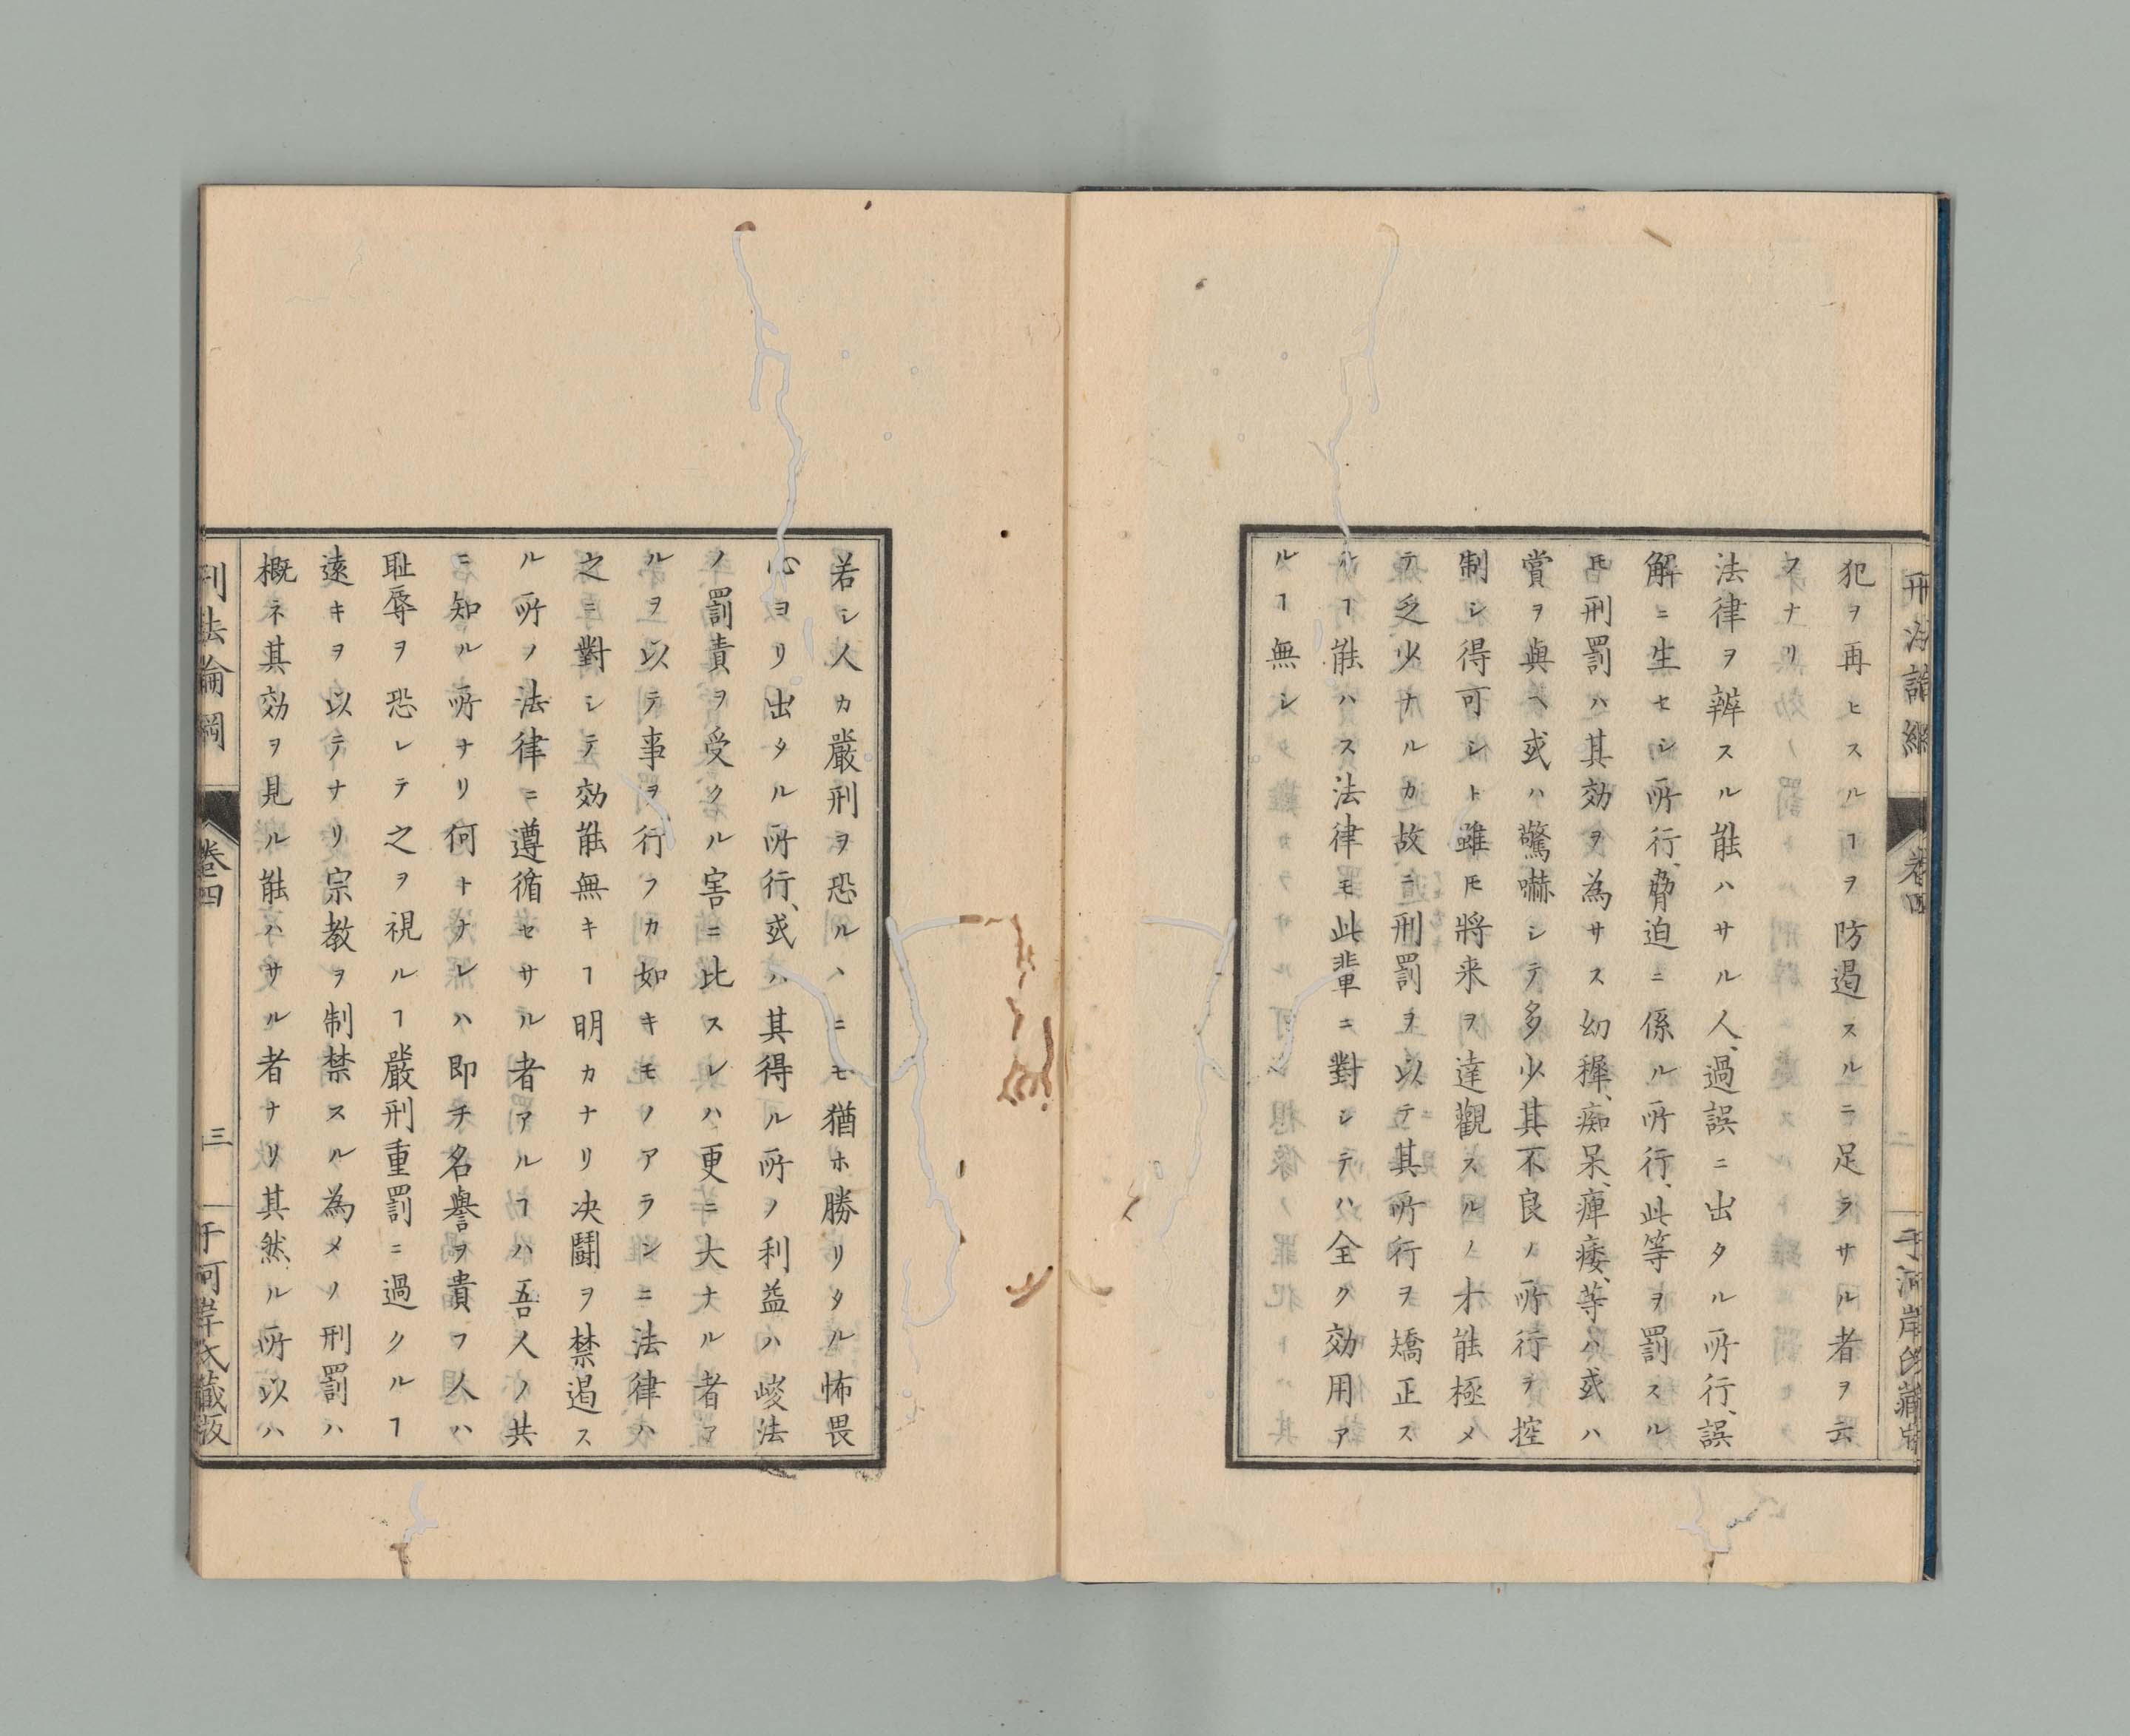 犯ヲ再ヒスルヿヲ防遏スルニ足ラサル者ヲ云
フナリ
法律ヲ辨スル能ハサル人、過誤ニ出タル所行、誤
解ニ生セシ所行、脅迫ニ係ル所行、此等ヲ罰スル
𪜈刑罰ハ其効ヲ為サス幼穉、痴呆、痺痿、等ハ或ハ
賞ヲ與ヘ或ハ驚嚇シテ多少其不良ノ所行ヲ控
制シ得可シト雖𪜈將来ヲ達觀スルノ才能極メ
テ乏少ナルカ故ニ刑罰ヲ以テ其所行ヲ矯正ス
ルヿ能ハス法律モ此輩ニ對シテハ全ク効用ア
ルヿ無シ
若シ人カ嚴刑ヲ恐ルヽニモ猶ホ勝リタル怖畏
心ヨリ出タル所行、或ハ其得ル所ノ利益ハ峻法
ノ罰責ヲ受クル害ニ比スレハ更ニ大ナル者ア
ルヲ以テ事ヲ行フカ如キモノアランニ法律ハ
之ニ對シテ効能無キヿ明カナリ决鬪ヲ禁遏ス
ル所ノ法律ニ遵循セサル者アルヿハ吾人ノ共
ニ知ル所ナリ何トナレハ即チ名譽ヲ貴フ人ハ
耻辱ヲ恐レテ之ヲ視ルヿ嚴刑重罰ニ過クルヿ
遠キヲ以テナリ宗教ヲ制禁スル為メノ刑罰ハ
概ネ其効ヲ見ル能ハサル者ナリ其然ル所以ハ
刑法論綱
卷四
三
于河岸氏藏版